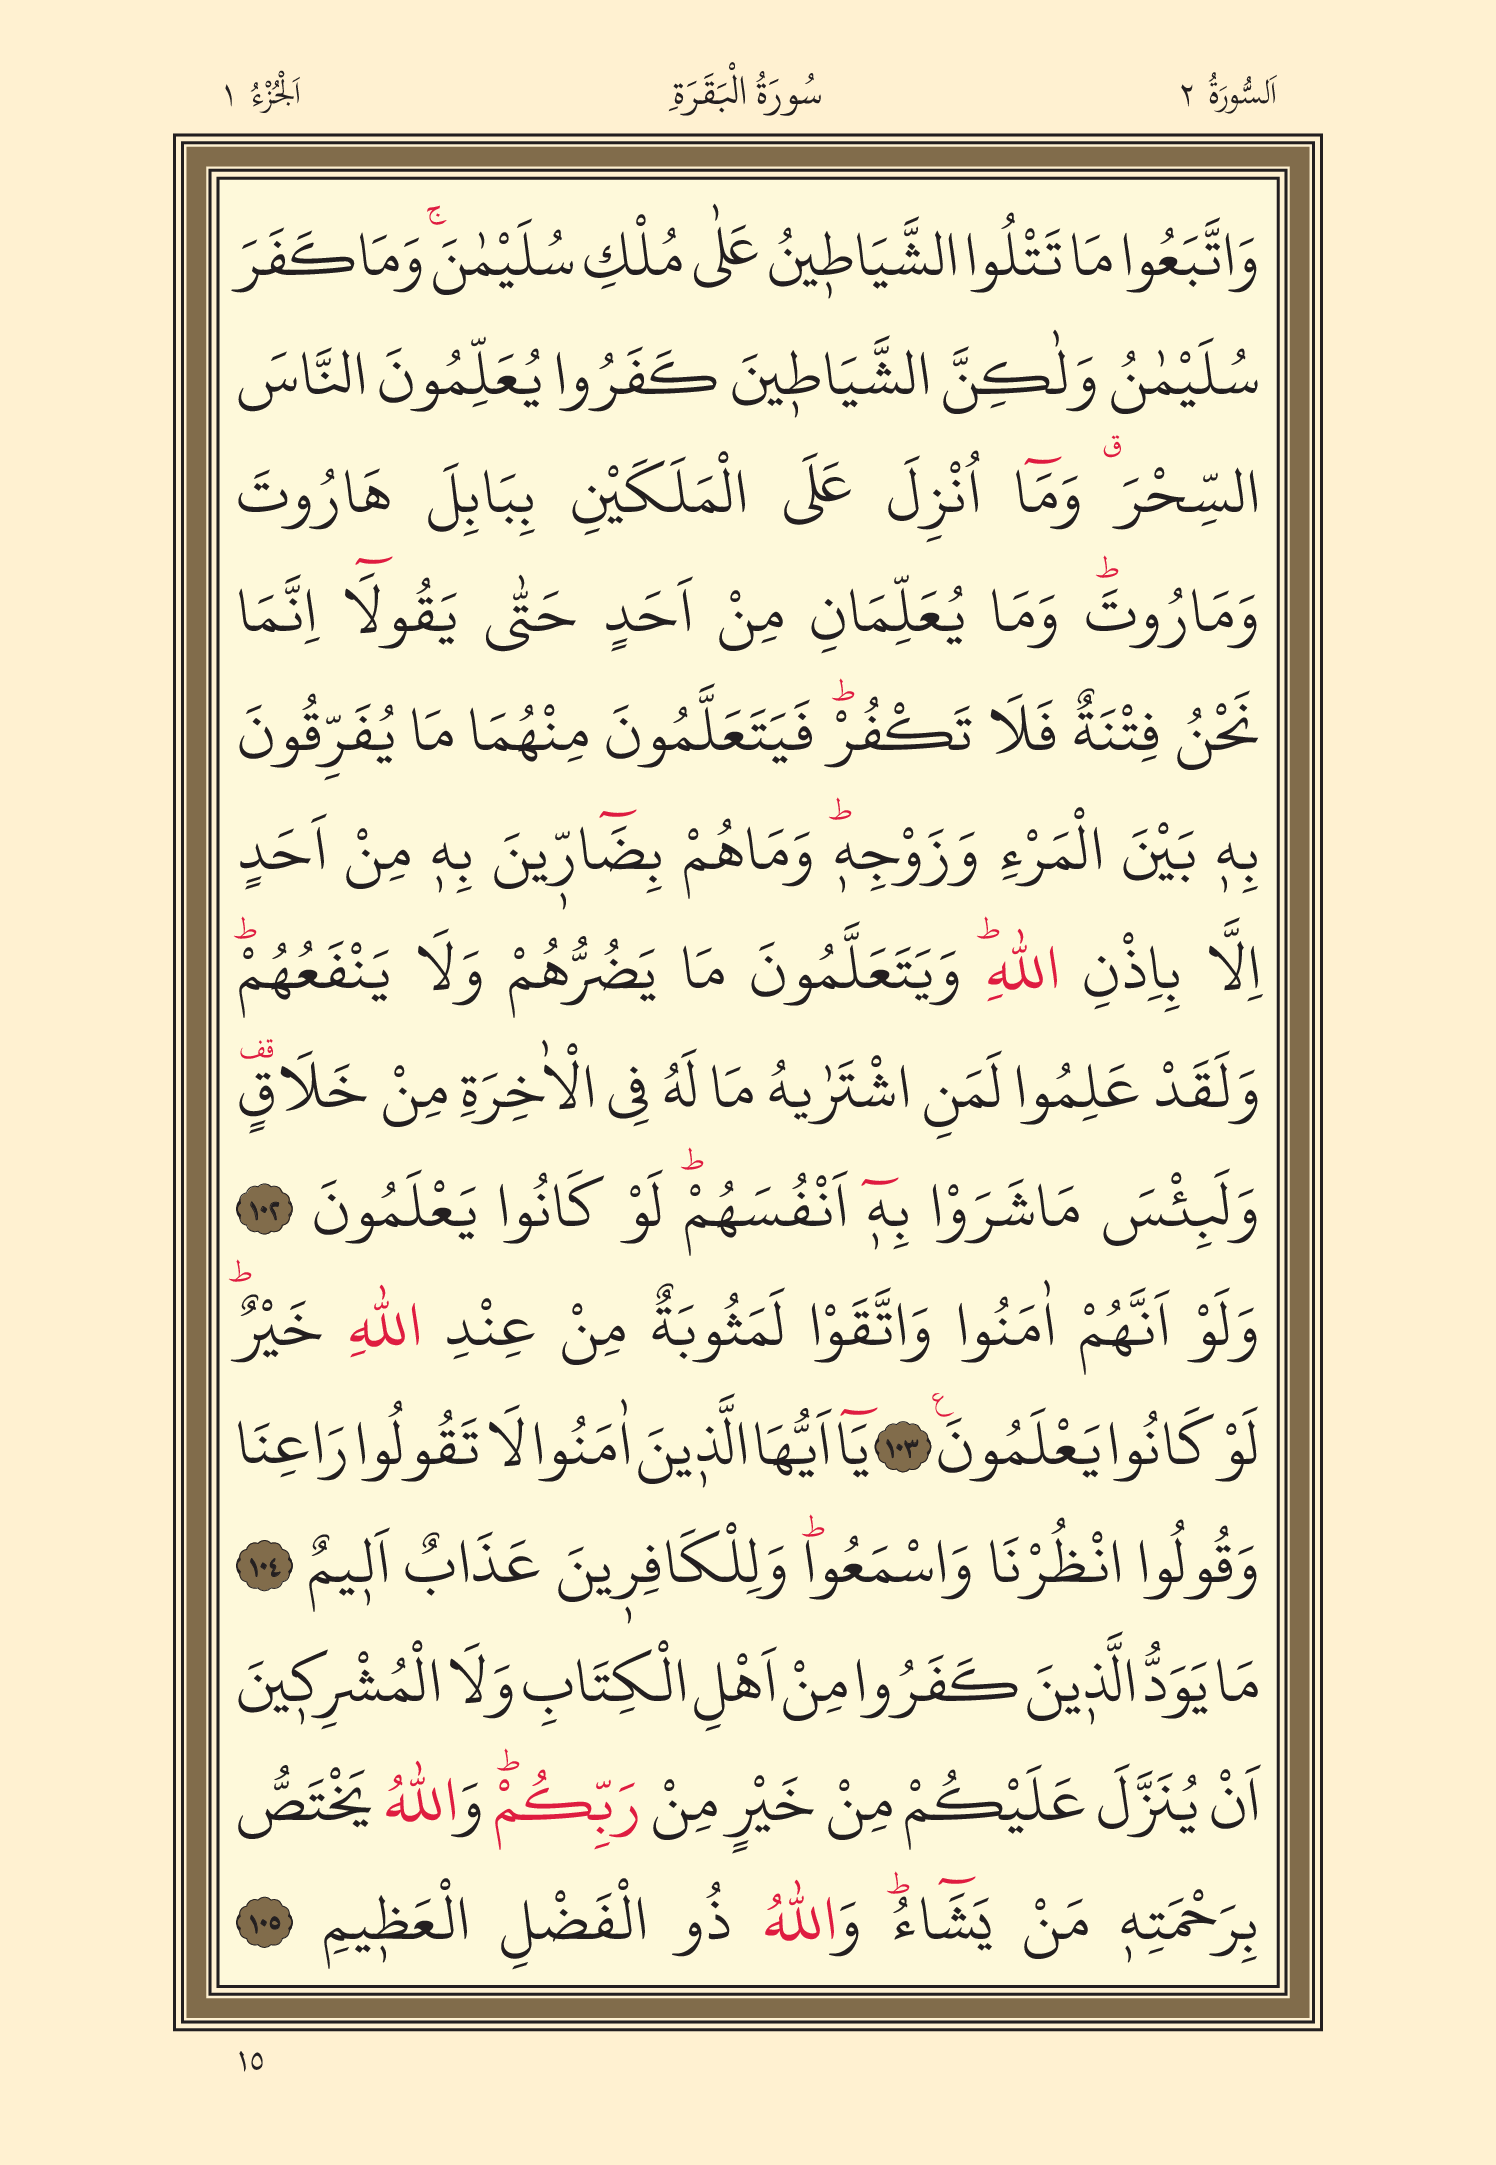 اَلسُّورَةُ ٢ سُورَةُ الْبَقَرَةِ اَلْجُزْءُ ١
وَاتَّبَعُوا مَا تَتْلُوا الشَّيَاط۪ينُ عَلٰى مُلْكِ سُلَيْمٰنَۚ وَمَا كَفَرَ
سُلَيْمٰنُ وَلٰكِنَّ الشَّيَاط۪ينَ كَفَرُوا يُعَلِّمُونَ النَّاسَ
السِّحْرَۗ وَمَٓا اُنْزِلَ عَلَى الْمَلَكَيْنِ بِبَابِلَ هَارُوتَ
وَمَارُوتَۜ وَمَا يُعَلِّمَانِ مِنْ اَحَدٍ حَتّٰى يَقُولَٓا اِنَّمَا
نَحْنُ فِتْنَةٌ فَلَا تَكْفُرْۜ فَيَتَعَلَّمُونَ مِنْهُمَا مَا يُفَرِّقُونَ
بِه۪ بَيْنَ الْمَرْءِ وَزَوْجِه۪ۜ وَمَا هُمْ بِضَٓارّ۪ينَ بِه۪ مِنْ اَحَدٍ
اِلَّا بِاِذْنِ اللّٰهِۜ وَيَتَعَلَّمُونَ مَا يَضُرُّهُمْ وَلَا يَنْفَعُهُمْۜ
وَلَقَدْ عَلِمُوا لَمَنِ اشْتَرٰيهُ مَا لَهُ فِى الْاٰخِرَةِ مِنْ خَلَاقٍ۠ قف
وَلَبِئْسَ مَا شَرَوْا بِه۪ٓ اَنْفُسَهُمْۜ لَوْ كَانُوا يَعْلَمُونَ ١٠٢
وَلَوْ اَنَّهُمْ اٰمَنُوا وَاتَّقَوْا لَمَثُوبَةٌ مِنْ عِنْدِ اللّٰهِ خَيْرٌۜ
لَوْ كَانُوا يَعْلَمُونَ۟ ١٠٣ يَٓا اَيُّهَا الَّذ۪ينَ اٰمَنُوا لَا تَقُولُوا رَاعِنَا
وَقُولُوا انْظُرْنَا وَاسْمَعُواۜ وَلِلْكَافِر۪ينَ عَذَابٌ اَل۪يمٌ ١٠٤
مَا يَوَدُّ الَّذ۪ينَ كَفَرُوا مِنْ اَهْلِ الْكِتَابِ وَلَا الْمُشْرِك۪ينَ
اَنْ يُنَزَّلَ عَلَيْكُمْ مِنْ خَيْرٍ مِنْ رَبِّكُمْۜ وَاللّٰهُ يَخْتَصُّ
بِرَحْمَتِه۪ مَنْ يَشَٓاءُۜ وَاللّٰهُ ذُو الْفَضْلِ الْعَظ۪يمِ ١٠٥
١٥